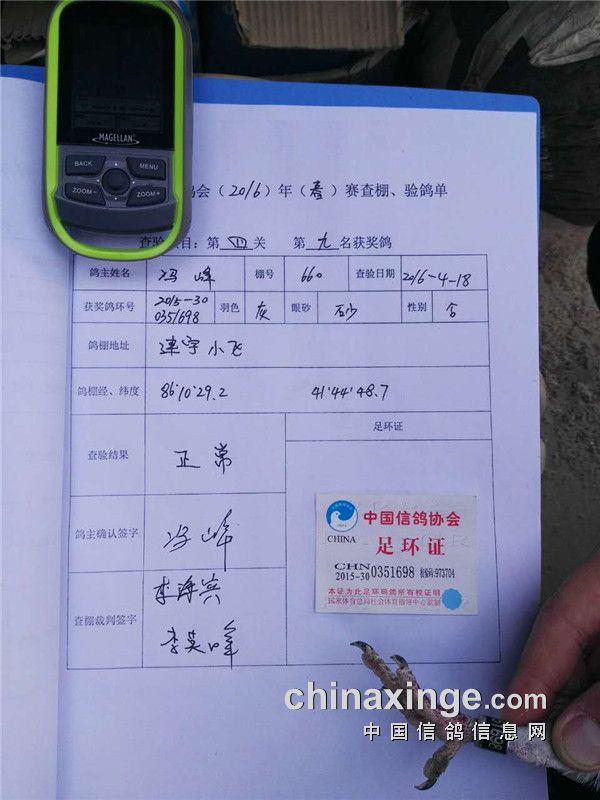 MAGELLAN
BACK MENU
ZOOM− ZOOM+
会（2016）年（春）赛查棚、验鸽单
查验 目：第 四 关 第 九 名获奖鸽
鸽主姓名 冯峰 棚号 660 查验日期 2016-4-18
获奖鸽环号 2015-30 0351698 羽色 灰 眼砂 砂 性别
鸽棚地址 建宇小飞
鸽棚经、纬度 86°10'29.2 41°44'48.7
查验结果 正常 足环证
鸽主确认签字 冯峰
查棚裁判签字 李海宾
李英峰
中国信鸽协会
CHINA 足环证
CHN
2015-30 0351698 973704
本证为此足环码鸽所有权证明
国家体育总局社会体育指导中心监制
chinaxinge.com
中国信鸽信息网